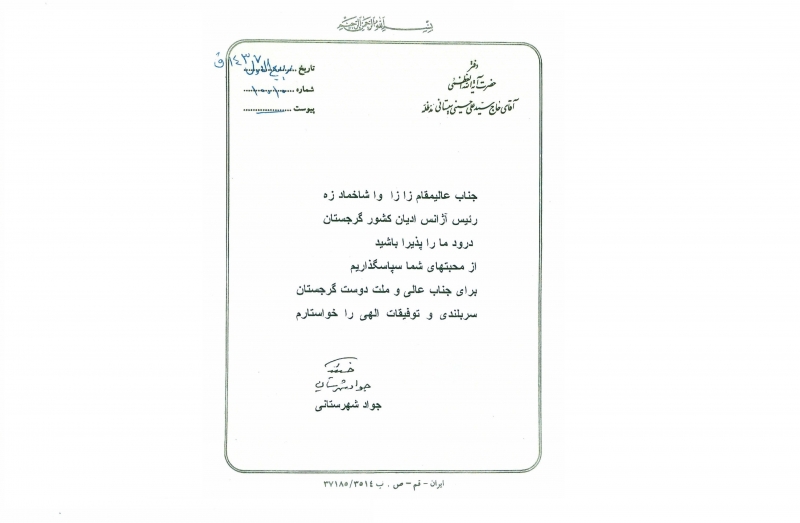 بسم الله الرحمن الرحیم
دفتر
حضرت آیة الله العظمی
آقای حاج سید علی حسینی سیستانی مدظله
تاریخ
شماره
پیوست
جناب عالیمقام زا زا وا شاخماد زه
رئیس آژانس ادیان کشور گرجستان
درود ما را پذیرا باشید
از محبتهای شما سپاسگذاریم
برای جناب عالی و ملت دوست گرجستان
سربلندی و توفیقات الهی را خواستارم
جواد شهرستانی
جواد شهرستانی
ایران - قم - ص . ب ۳۵۱۴/۳۷۱۸۵